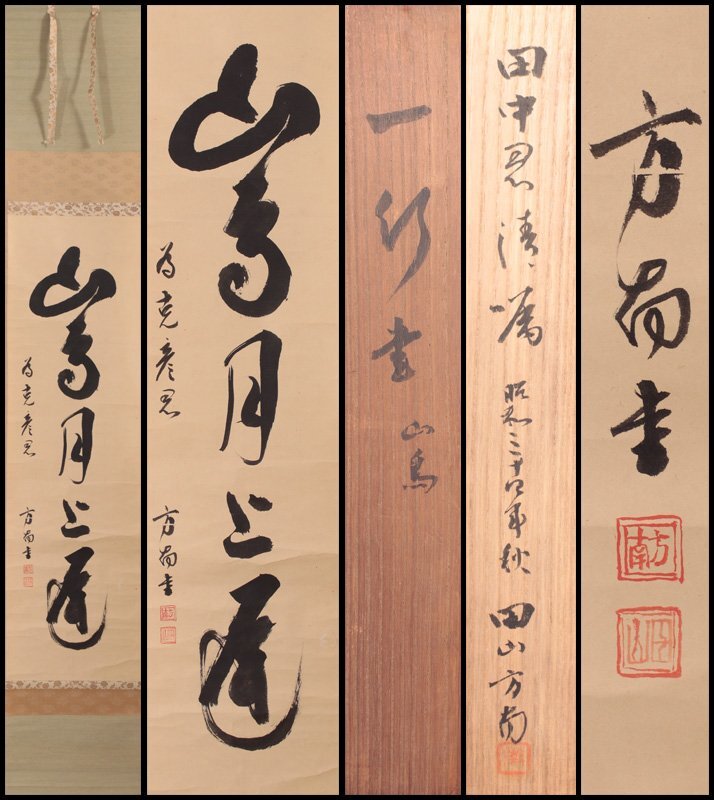 山高月上遅
為克彦君
方南書
山高月上遅
為克彦君
方南書
一行書 山高
田中君清嘱
昭和三十四年秋 田山方南
方南書
方南
田山